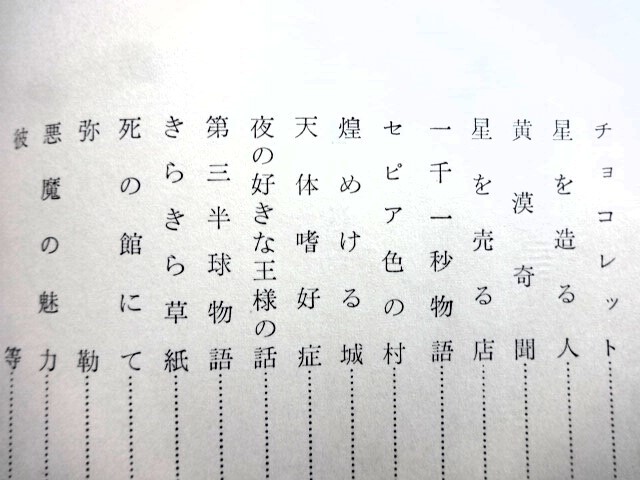 チョコレット
星を造る人
黄漠奇聞
星を売る店
一千一秒物語
セピア色の村
煌めける城
天体嗜好症
夜の好きな王様の話
第三半球物語
きらきら草紙
死の館にて
弥勒
悪魔の魅力
彼等